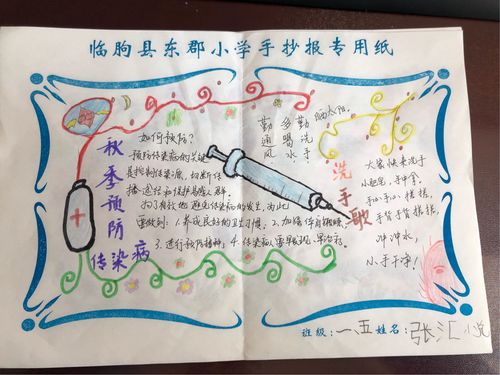 临朐县东郡小学手抄报专用纸
秋季预防
传染病
如何预防?
预防传染病的关键
是控制传染源,切断传
播途径和保护易感人群。
为了有效地避免传染病的发生,为此
要做到:1.养成良好的卫生习惯。2.加强体育锻炼
3.进行预防接种。4.传染病人要早发现,早治疗。
勤通风
多喝水
勤洗手
晒太阳。
洗手歌
大家快来洗手
小肥皂,手中拿,
手心手心,搓搓,
手背手背搓搓,
冲冲水,
小手干净!
班级:一、五 姓名:张汇